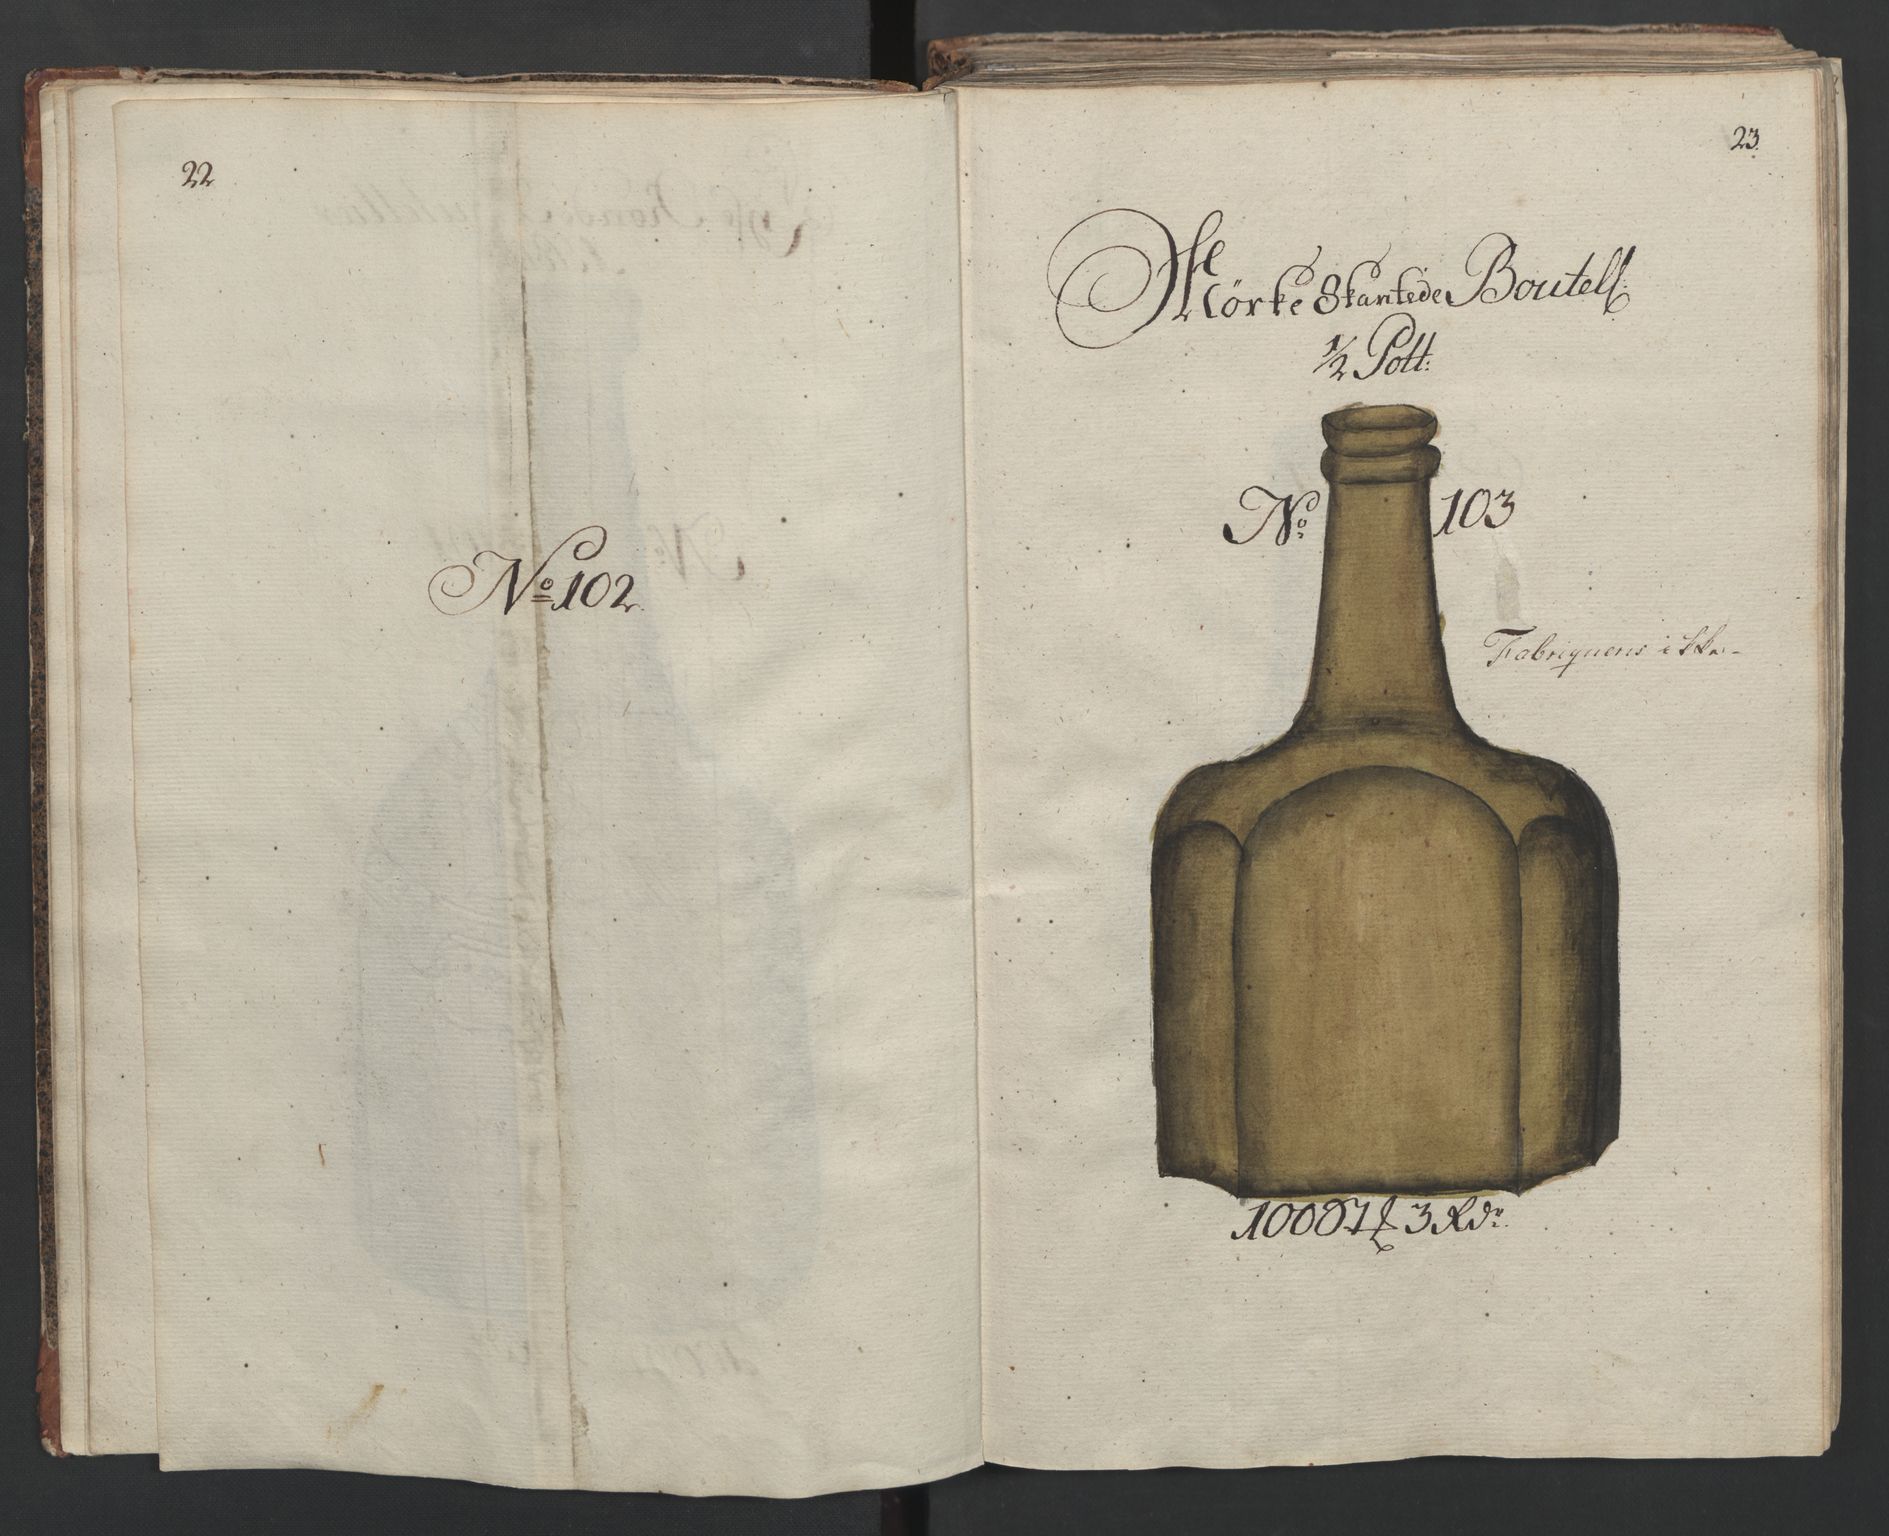 22
No 102
23
Mörke Skantede Boutell:
1/2 Pott:
No 103
Fabriquens ikke
100 St 3 Rdr.